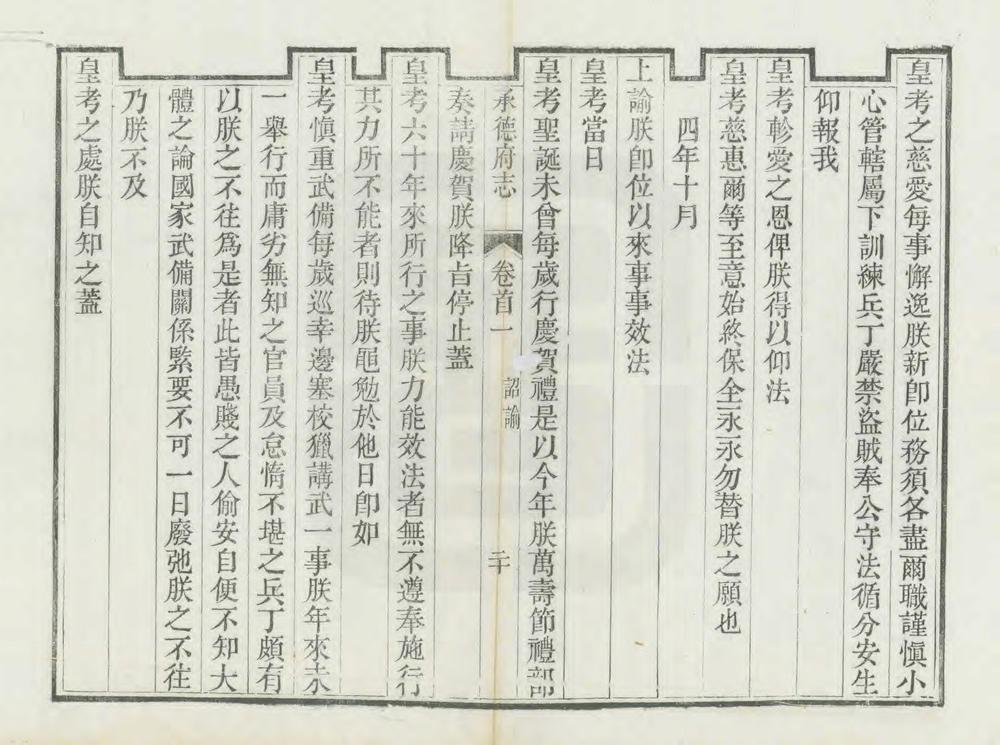 皇考之慈愛每事懈逸朕新卽位務須各盡爾職謹愼小
心管轄屬下訓練兵丁嚴禁盜賊奉公守法循分安生
仰報我
皇考軫愛之恩俾朕得以仰法
皇考慈惠爾等至意始終保全永永勿替朕之願也
四年十月
上諭朕卽位以來事事效法
皇考當日
皇考聖誕未曾每歲行慶賀禮是以今年朕萬壽節禮部
承德府志 卷首一 詔諭 二十
奏請慶賀朕降旨停止蓋
皇考六十年來所行之事朕力能效法者無不遵奉施行
其力所不能者則待朕黽勉於他日卽如
皇考愼重武備每歲巡幸邊塞校獵講武一事朕年來未
一舉行而庸劣無知之官員及怠惰不堪之兵丁頗有
以朕之不往爲是者此皆愚賤之人偷安自便不知大
體之論國家武備關係緊要不可一日廢弛朕之不往
乃朕不及
皇考之處朕自知之蓋